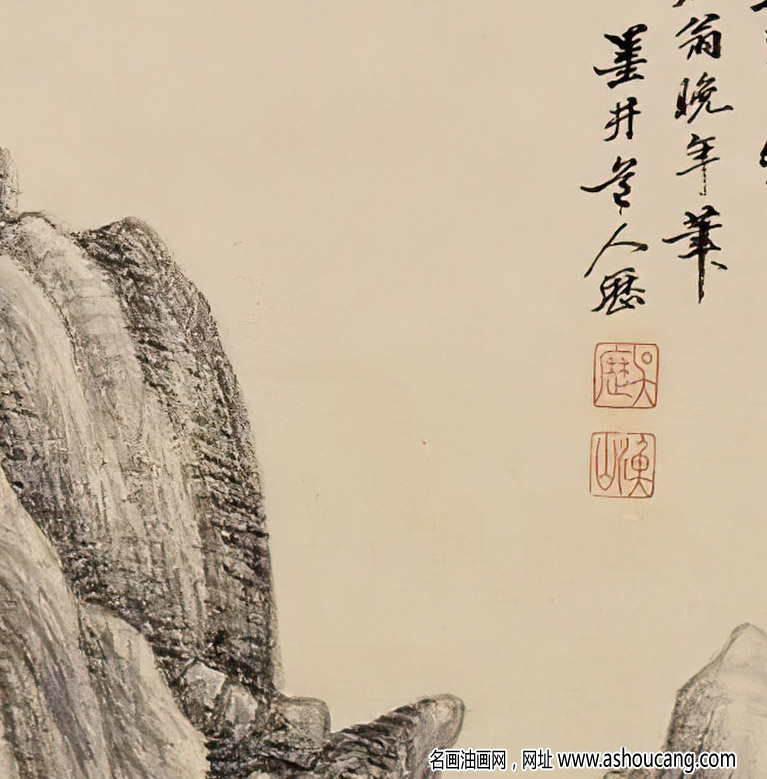 翁晚年筆
墨井道人歷
吳歷
漁山
名画油画网，网址 www.ashoucang.com